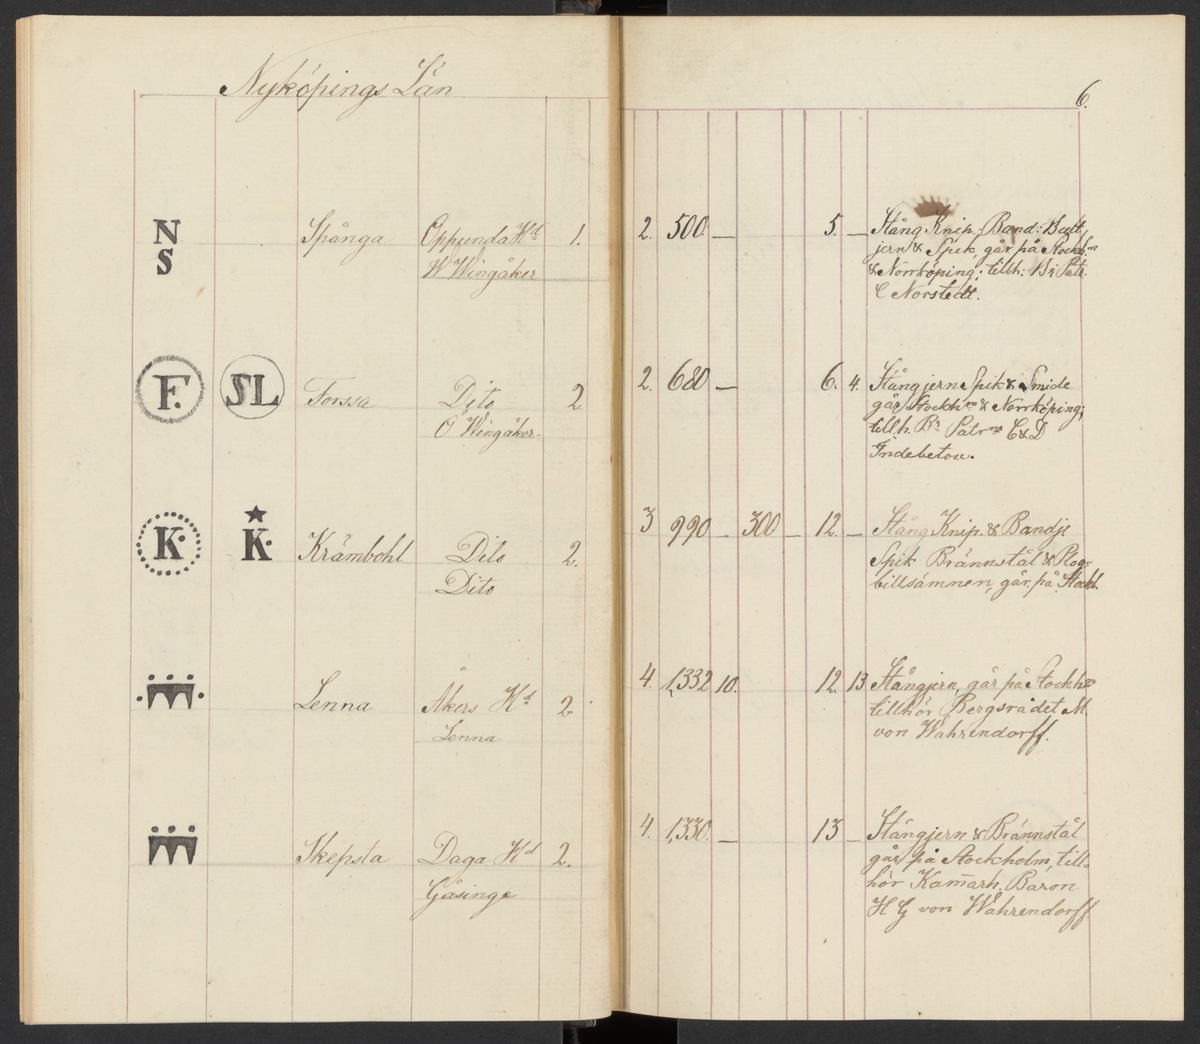 Nyköpings Län
6.
N
S
Spånga Oppunda Hd 1. 2. 500. — 5. — Stång Knip, Band: Bult,
W Wingåker
jern & Spik, går på Stockhm
& Norrköping; tillh: Br Patr.
C Norstedt.
F. SL Forssa Dito 2 2. 680 — 6. 4. Stångjern Spik & Smide
O Wingåker
går Stockhm & Norrköping;
tillh. Br Patrnr C & D
Indebetou.
K. K. Krämbohl Dito 2. 3 990 — 300 — 12. — Stång Knip. & Bandj.
Dito
Spik Brännstål & Plog-
billsämnen, går på Stockh.
Lenna Åkers Hd 2. 4. 1,332 10. 12. 13 Stångjern, går på Stockhm
Lenna
tillhör Bergsrådet M.
von Wahrendorff.
Skepsta Daga Hd 2. 4. 1,330. — 13 — Stångjern & Brännstål
Gåsinge
går på Stockholm, till-
hör Kam̅arh. Baron
H G von Wahrendorff